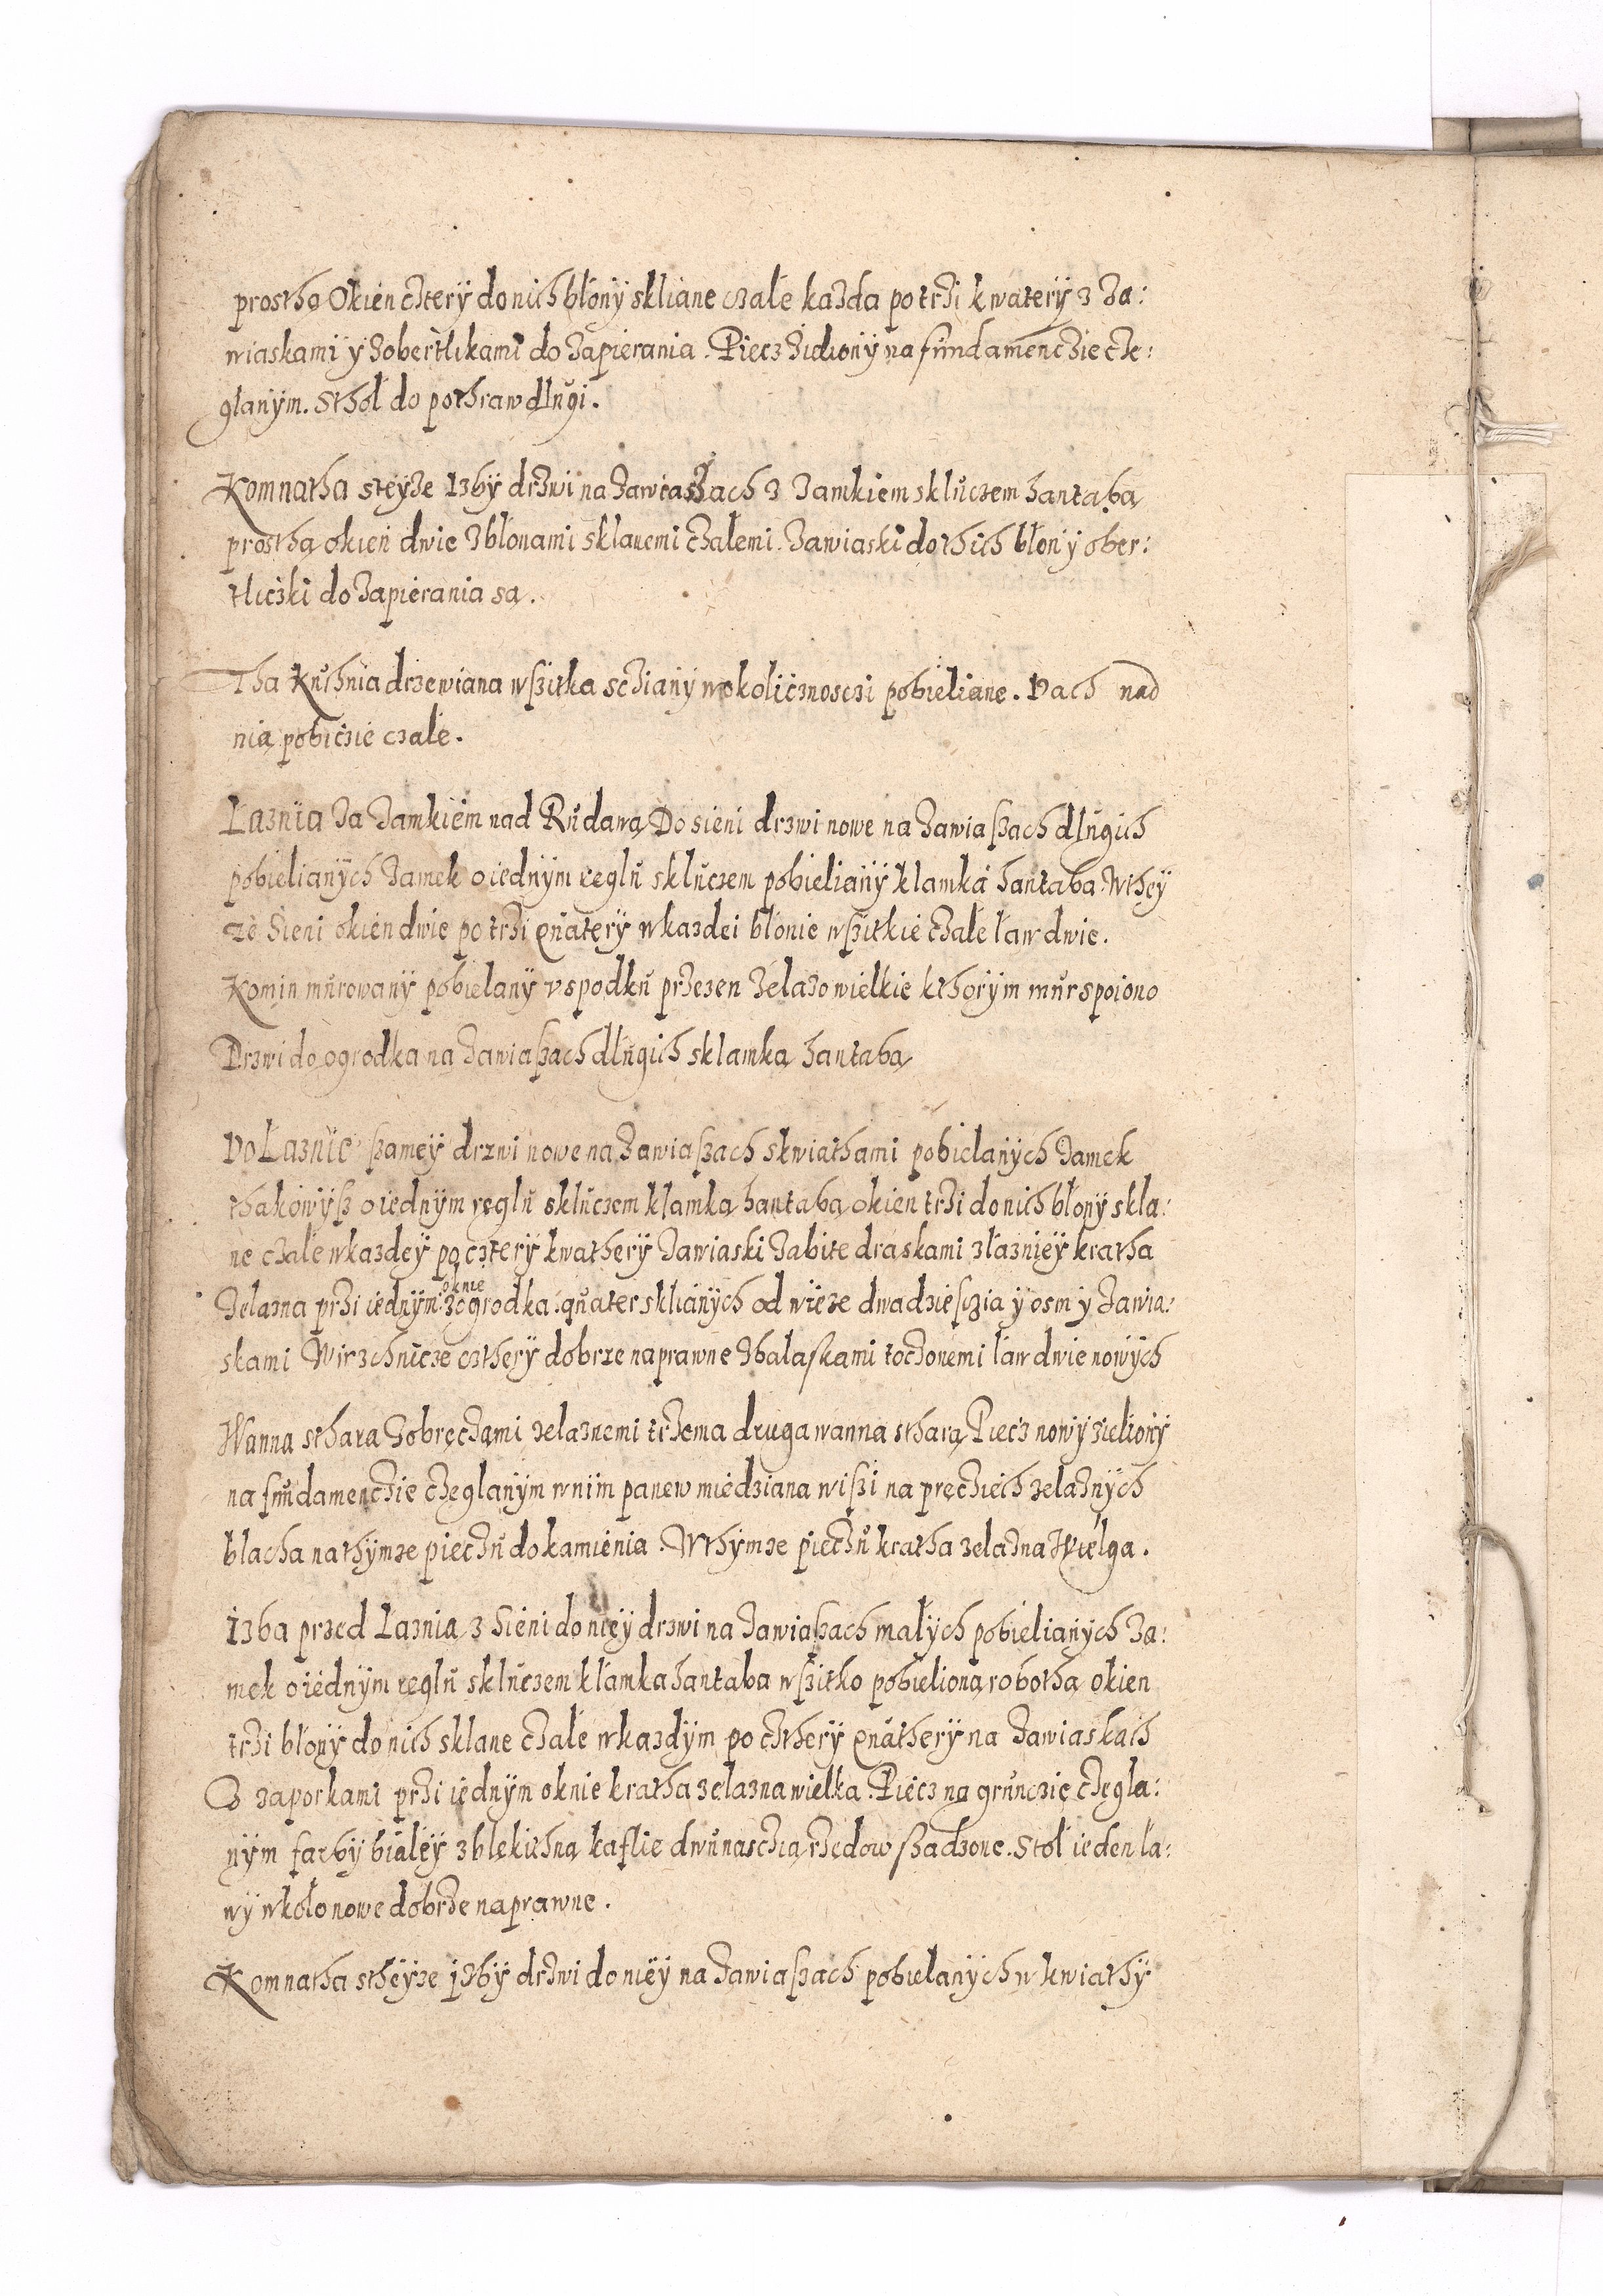 prosthą Okien cztery do nich błony skliane czałe każda po trzi kwatery z za:
wiaskami y zobertlikami do zapierania. Piecz zieliony na fundamenczie cze:
glanym. Sthół do pothraw dlugi.
Komnatha steyze Izby drzwi na zawiaszach z zamkiem skluczem hantabą
prosthą okien dwie zblonami sklanemi czałemi. zawiaski do thich błon y ober:
tliczki do zapierania są.
Tha Kuchnia drzewiana wszitka scziany wokolicznosczi pobieliane. Dach nad
nią pobiczie czałe.
Łaznia za zamkiem nad Rudawą Do sieni drzwi nowe na zawiaszach dlugich
pobielianych zamek o iednym reglu skluczem pobieliany klamka hantaba. Wthey
ze Sieni okien dwie po trzi quatery wkazdei błonie wszitkie czałe ław dwie.
Komin murowany pobielany v spodku przezen żelazo wielkie kthorym mur spoiono
Drzwi do ogrodka na zawiaszach dlugich sklamką hantabą
Do Laznie szamey drzwi nowe na zawiaszach skwiathami pobielanych zamek
thakowysz o iednym reglu skluczem klamką hantabą okien trzi do nich błony skla:
ne czałe wkazdey po cztery kwathery zawiaski zabite draskami złazniey kratha
zelazna przi iednym oknie zogrodka. quater sklianych od wieze dwadziesczia y osm y zawia:
skami Wirzchnicze czthery dobrze naprawne zbalaskami toczonemi ław dwie nowych
Wanna sthara zobręczami zelaznemi trzema druga wanna sthara Piecz nowy zieliony
na fundamenczie czeglanym wnim panew miedziana wiszi na pręcziech zelaznych
blacha na thymze pieczu do kamienia. Wthymze pieczu kratha zelazna Wielga.
Izba przed Laznią z Sieni do niey drzwi na zawiaszach małych pobielianych za:
mek o iednym reglu skluczem klamka hantaba wszitko pobielioną robothą okien
trzi błony do nich sklane czałe wkazdym po czthery quathery na zawiaskach
zaporkami przi iednym oknie kratha zelazna wielka. Piecz na grunczie czegla:
nym farby białey zblękithną kaflie dwunasczią rzędow szadzone. Stół ieden ła:
wy wkoło nowe dobrze naprawne.
Komnatha stheyze izby drzwi do niey na zawiaszach pobielanych w kwiathy